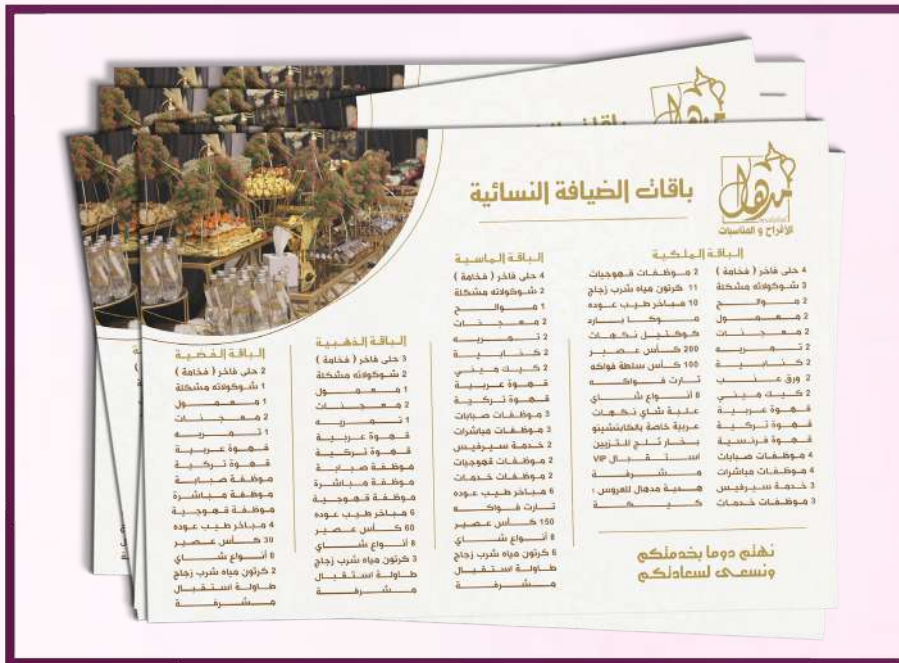 مدهال
للأفراح و المناسبات
باقات الضيافة النسائية
الباقة الملكية
4 حلى فاخر ( فخامة )
3 شوكولاته مشكلة
2 موالح
2 معمول
2 معجنات
2 تمريه
2 كنابية
2 ورق عنب
2 كيك ميني
قهوة عربية
قهوة تركية
قهوة فرنسية
4 موظفات صبابات
4 موظفات مباشرات
3 خدمة سيرفيس
3 موظفات خدمات
2 موظفات قهوجيات
11 كرتون مياه شرب زجاج
10 مباخر طيب عوده
موكا بارد
كوكتيل نكهات
200 كأس عصير
100 كأس سلطة فواكه
تارت فواكه
8 أنواع شاي
علبة شاي نكهات
عربية خاصة بالكابتشينو
بخار ثلج للتزيين
استقبال VIP
مشرفة
هدية مدهال للعروس :
كيكة
الباقة الماسية
4 حلى فاخر ( فخامة )
2 شوكولاته مشكلة
1 موالح
2 معجنات
2 تمريه
2 كنابية
2 كيك ميني
قهوة عربية
قهوة تركية
3 موظفات صبابات
3 موظفات مباشرات
2 خدمة سيرفيس
2 موظفات قهوجيات
2 موظفات خدمات
6 مباخر طيب عوده
تارت فواكه
150 كأس عصير
8 أنواع شاي
6 كرتون مياه شرب زجاج
طاولة استقبال
مشرفة
الباقة الذهبية
3 حلى فاخر ( فخامة )
2 شوكولاته مشكلة
1 معمول
2 معجنات
1 تمريه
قهوة عربية
قهوة تركية
موظفة صبابة
موظفة مباشرة
موظفة قهوجية
6 مباخر طيب عوده
60 كأس عصير
8 أنواع شاي
3 كرتون مياه شرب زجاج
طاولة استقبال
مشرفة
الباقة الفضية
2 حلى فاخر ( فخامة )
1 شوكولاته مشكلة
1 معمول
2 معجنات
1 تمريه
قهوة عربية
قهوة تركية
موظفة صبابة
موظفة مباشرة
موظفة قهوجية
4 مباخر طيب عوده
30 كأس عصير
8 أنواع شاي
2 كرتون مياه شرب زجاج
طاولة استقبال
مشرفة
نهتم دوما بخدمتكم
ونسعى لسعادتكم